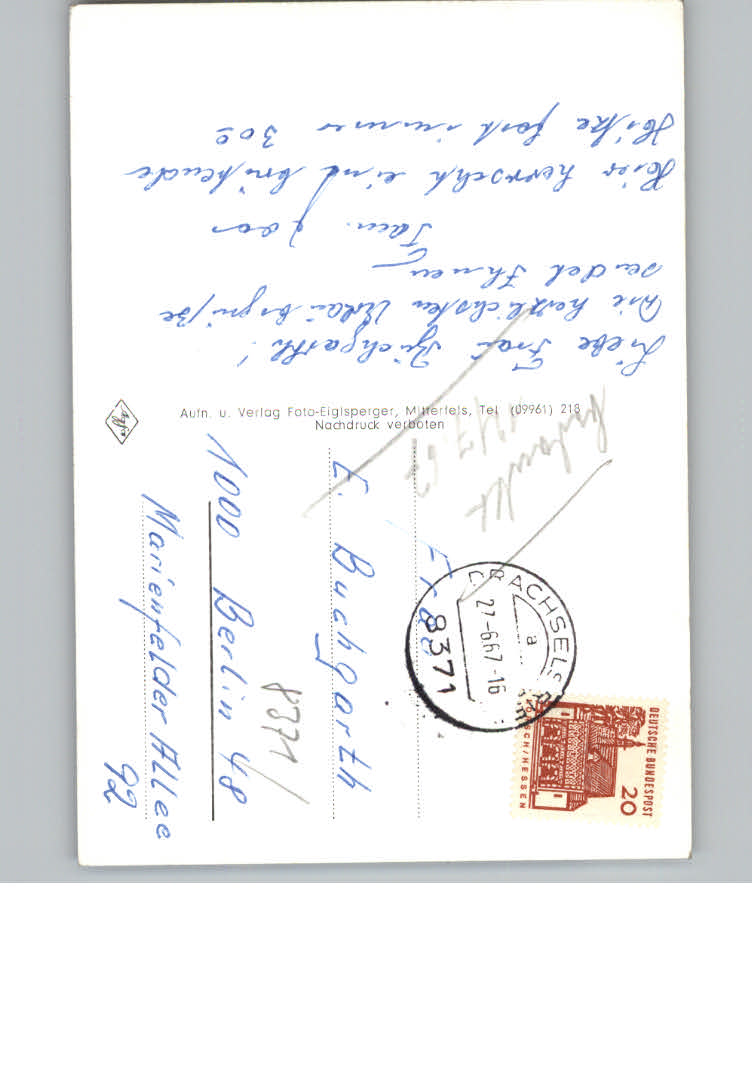 Liebe Frau Buchgarth!
Die herzlichsten Urlaubsgrüße
sendet Ihnen
Fam.
Hier herrscht eine brütende
Hitze fast immer 30°
Agfa
Aufn. u. Verlag Foto-Eiglsperger, Mitterfels, Tel. (09961) 218
Nachdruck verboten
Frau
E. Buchgarth
1000 Berlin 48
Marienfelder Allee
92
8371
DRACHSELS
27.-6.67-16
a
8371
DEUTSCHE BUNDESPOST
20
SCH/HESSEN